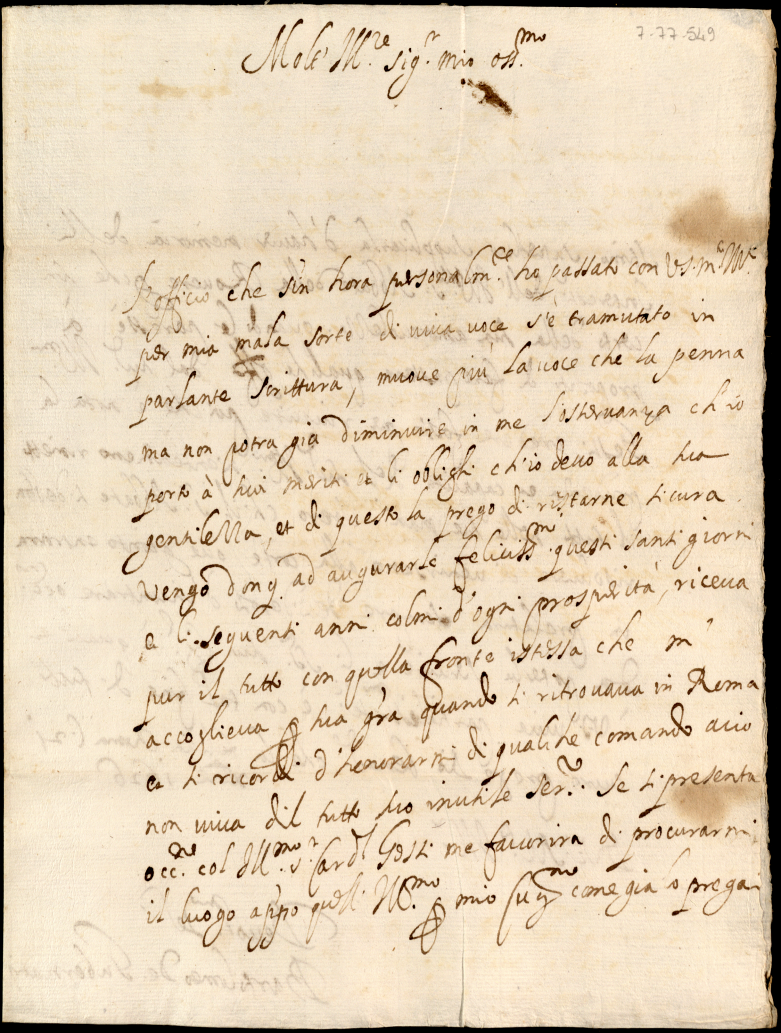 7-77-549
Molt' Ill.re sig.r mio oss.mo
L'officio che sin hora personalm.te ho passato con V.S. m.to Ill.e
per mia mala sorte di viva voce s'è tramutato in
parlante scrittura, muove più la voce che la penna
ma non potra già diminuire in me l'osservanza ch'io
porto à suoi meriti et li oblighi ch'io devo alla sua
gentilezza, et di questo la prego di restarne sicura
Vengo donq. ad augurarle feliciss.mi questi santi giorni
e li seguenti anni colmi d'ogni prosperità, riceva
pur il tutto con quella fronte istessa che m'
accoglieva sua gr'a quando si ritrovava in Roma
et si ricordi d'honorarmi di qualche comando acciò
non viva del tutto suo inutile ser.re Se si presenta
occ.ne col Ill.mo s.r Card.l me favorira di procurarmi
il luogo app'o quell' Ill.mo mio come già lo pregai